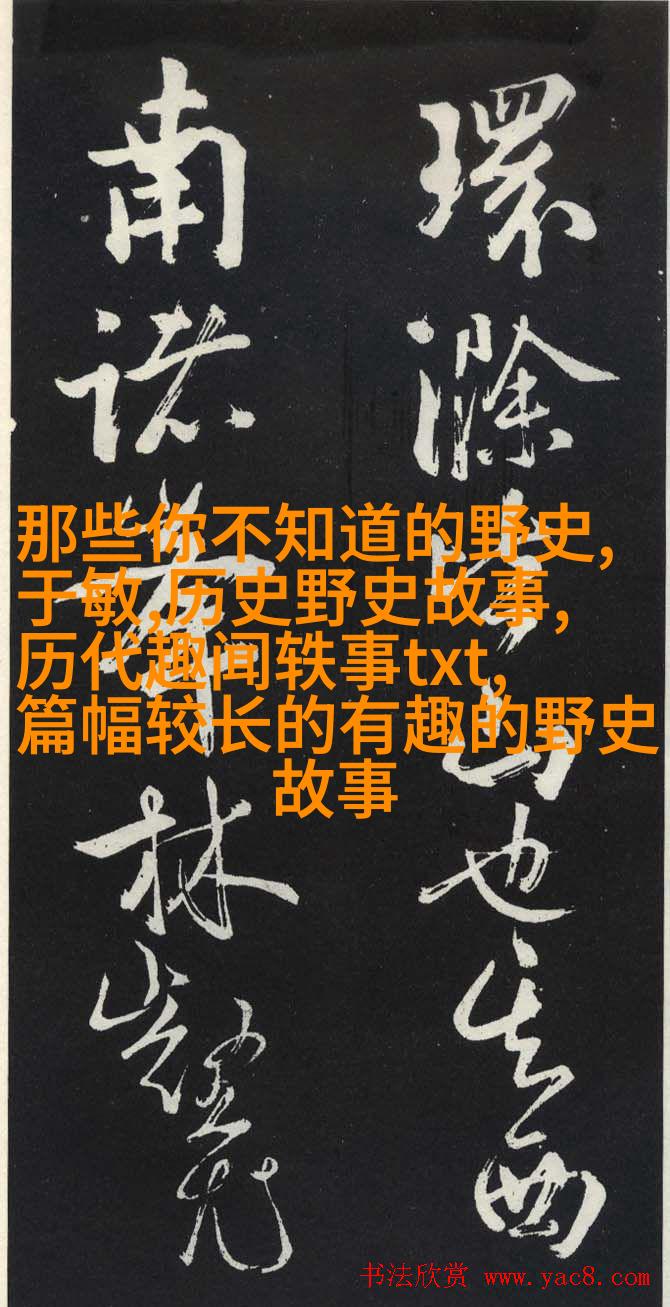 環滁皆山也其西
南諸峯林壑尤
那些你不知道的野史,
于敏,历史野史故事,
历代趣闻轶事txt,
篇幅较长的有趣的野史
故事
书法欣赏 www.yac8.com